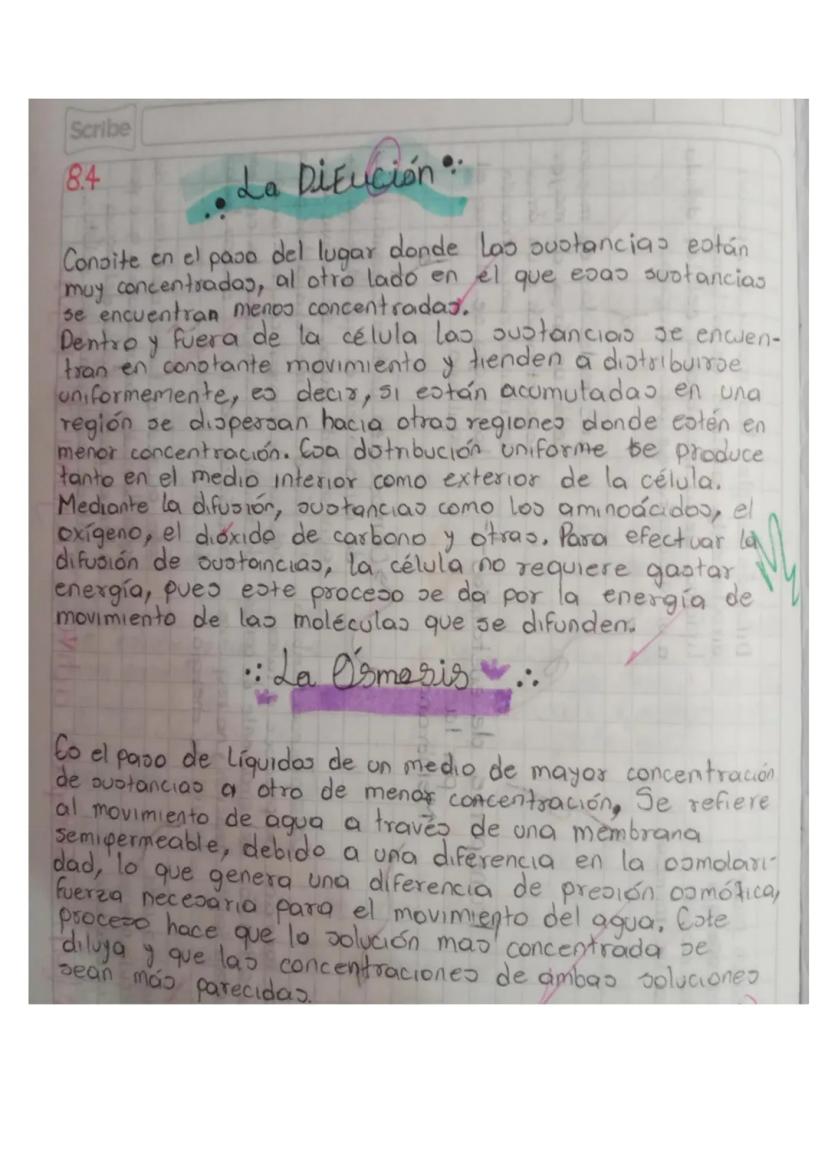 Scribe
8.4
La Difución
Consite en el paso del lugar donde las sustancias están
muy concentradas, al otro lado en el que esas sustancias
se encuentran menos concentradas.
Dentro y fuera de la célula las sustancias se encuen-
tran en constante movimiento y tienden a distribuirse
uniformemente, es decir, si están acumutadas en una
región se dispersan hacia otras regiones donde estén en
menor concentración. Esa dstribución uniforme se produce
tanto en el medio interior como exterior de la célula.
Mediante la difusión, sustancias como los aminoácidos, el
oxígeno, el dióxido de carbono y otras. Para efectuar la
difusión de sustaincias, la célula no requiere gastar
energía, pues este proceso se da por la energía de
movimiento de las moléculas que se difunden.
La Ósmosis
Es el paso de líquidos de un medio de mayor concentración
de sustancias a otro de menor concentración, Se refiere
al movimiento de agua a través de una membrana
semipermeable, debido a una diferencia en la osmolari-
dad, lo que genera una diferencia de presión osmótica,
fuerza necesaria para el movimiento del agua. Este
proceso hace que la solución mas concentrada se
diluya y que las concentraciones de ambas soluciones
sean más parecidas.